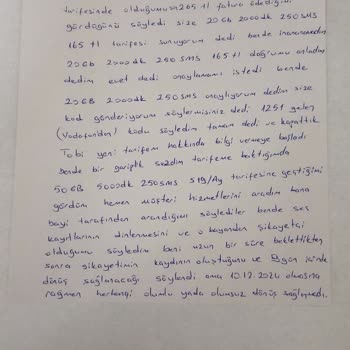 tarifesinde olduğumu 265 tl fatura ödediğimi
gördüğünü söyledi size 20 GB 2000dk 250 SMS
165 tl tarifesi sunuyorum dedi bende inanamadım
20GB 2000dk 250 SMS 165 tl doğrumu anladım
dedim evet dedi onaylamamı istedi bende
20GB 2000dk 250 SMS onaylıyorum dedim size
kod gönderiyorum söylermisiniz dedi 1251 gelen
(Vodafondan) kodu söyledim tamam dedi ve kapattık
Tabi yeni tarifem hakkında bilgi vermeye başladı
bende bir gariplik sezdim tarifeme baktığımda
50 GB 5000dk 250 SMS 519/Ay tarifesine geçtiğimi
gördüm hemen müşteri hizmetlerini aradım bana
bayi tarafından arandığımı söylediler bende ses
kayıtlarının dinlenmesini ve o bayandan şikayetçi
olduğumu söyledim beni uzun bir süre beklettikten
sonra şikayetimin kaydının oluştuğunu ve içinde
dönüş sağlanacağı söylendi ama 10.12.2024 olmasına
rağmen herhangi olumlu yada olumsuz dönüş sağlanmadı.